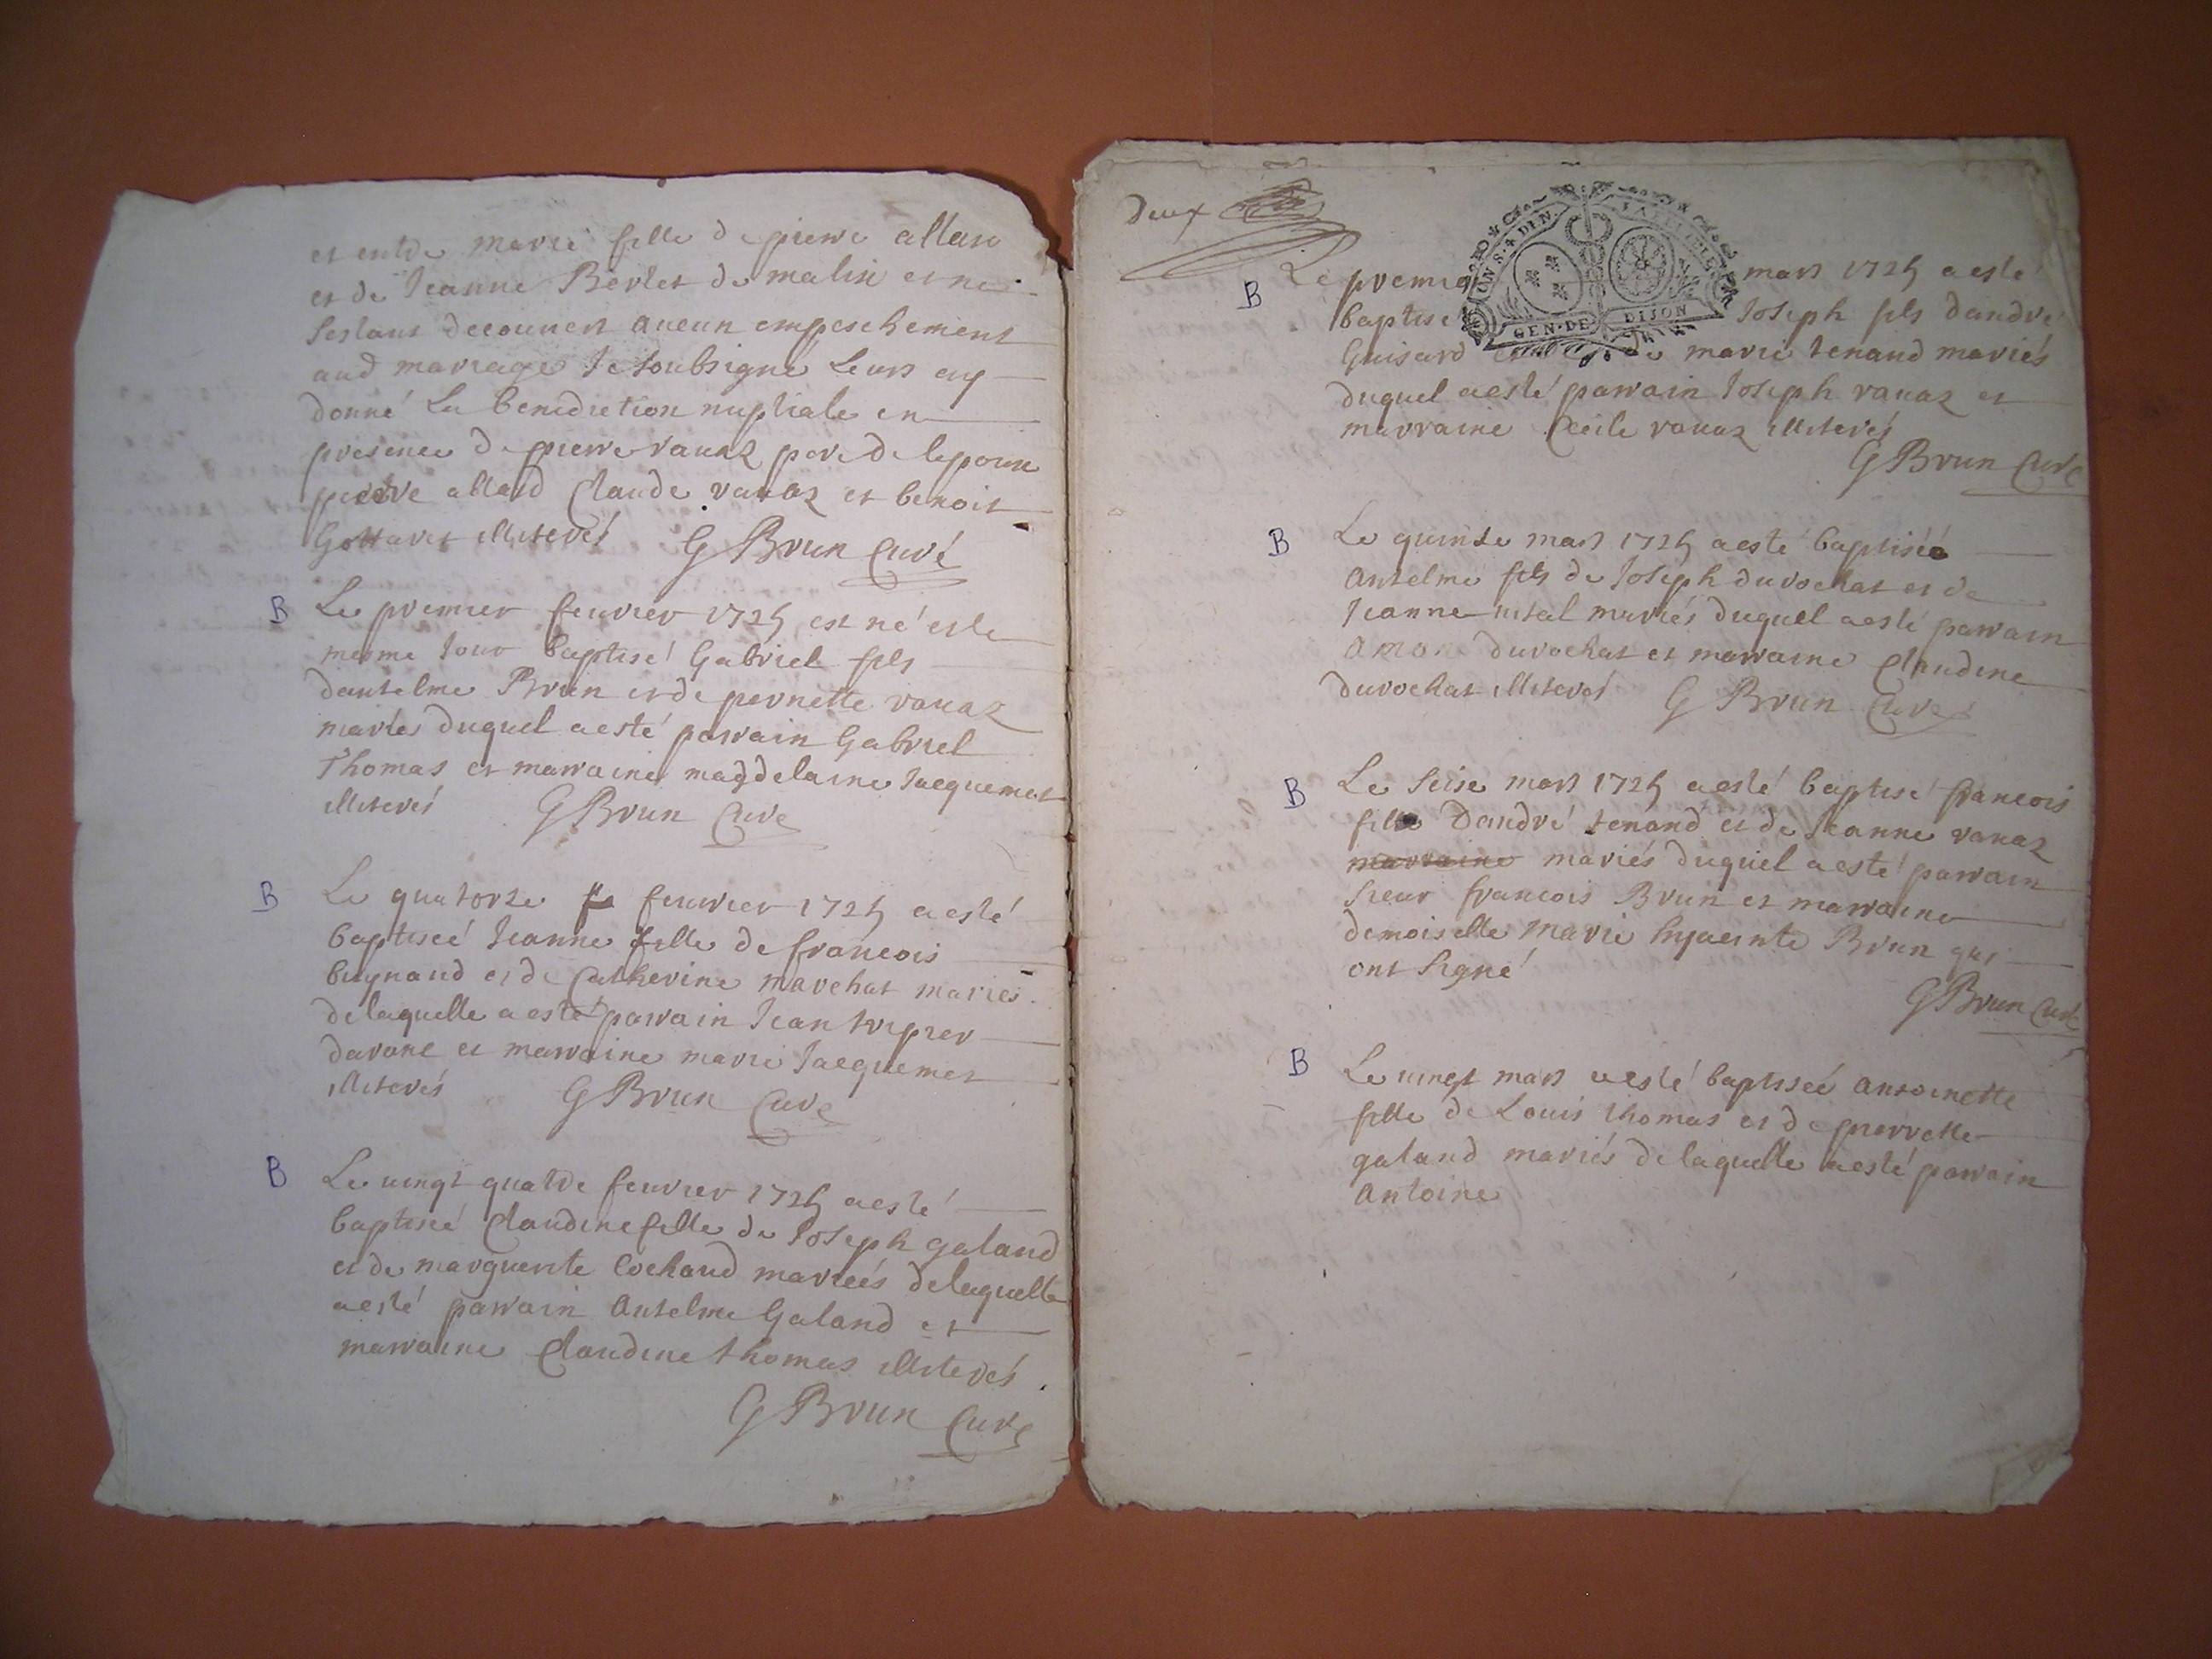 et entre marie fille de pierre allard
et de Jeanne Berlet de malix et ne
sestant decouvert aucun empeschement
aud mariage Je soubsigné Leurs ay
donné La benediction nuptiale en
presence de pierre vauaz pere de lepoux
pierre allard Claude vauaz et benoit
Gottaret illiterés G Brun Curé
B Le premier feurier 1725 est né et le
mesme Jour baptisé Gabriel fils
dantelme Brun et de pernette vauaz
mariés duquel a esté parrain Gabriel
Thomas et marraine magdelaine Jacquemet
illiterés G Brun Curé
B Le quatorze feurier 1725 a esté
baptiseé Jeanne fille de francois
buynand et de Catherine marchat mariés
delaquelle a esté parrain Jean
et marraine marie Jacquemet
illiterés G Brun Curé
B Le uingt quatre feurier 1725 a esté
baptiseé Claudine fille de Joseph galand
et de marguerite Cochaud marieés delaquelle
a esté parrain Antelme Galand et
marraine Claudine thomas illiterés
G Brun Curé
Deux
GEN·DE DIJON
B Le premie mars 1725 a esté
baptise Joseph fils dandré
Guisard marie tenand mariés
duquel a esté parrain Joseph vauaz et
marraine Cecile vauaz illiterés
G Brun Curé
B Le quinze mars 1725 a esté baptiseé
Antelme fils de Joseph durochat et de
Jeanne uital mariés duquel a esté parrain
durochat et marraine Claudine
durochat illiterés G Brun Curé
B Le Seise mars 1725 a esté baptisé francois
fils Dandré tenand et de Jeanne vauaz
marraine mariés duquel a esté parrain
Sieur francois Brun et marraine
demoiselle marie hyacinte Brun qui
ont Signé
G Brun Curé
B Le uingt mars a esté baptiseé Antoinette
fille de Louis thomas et de pierrette
galand mariés delaquelle a esté parrain
Antoine